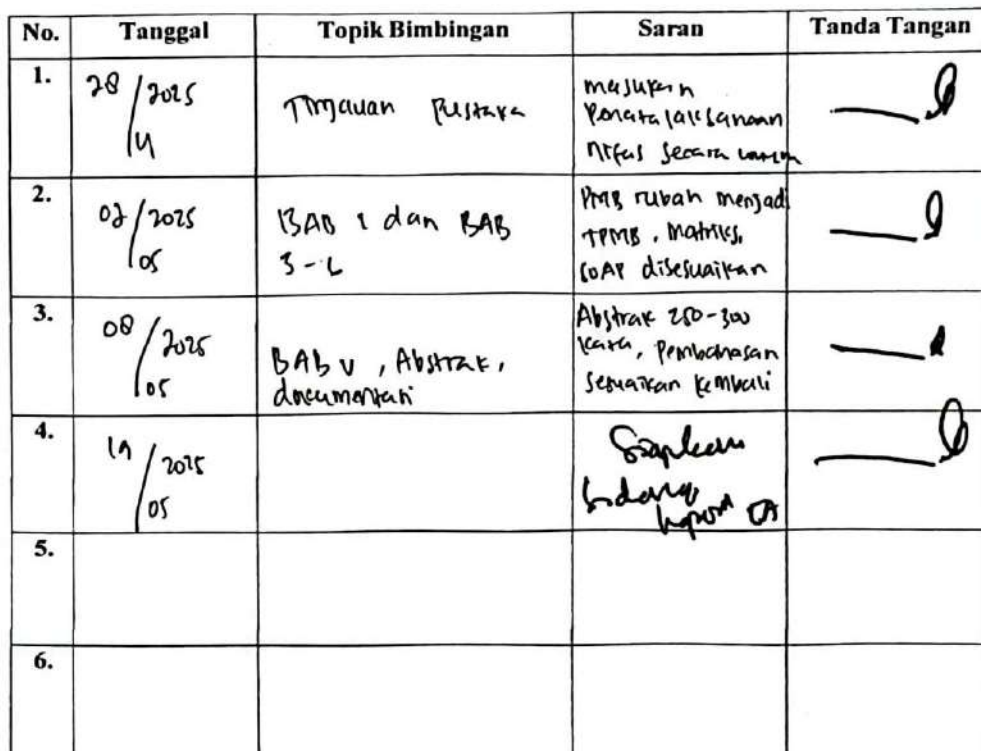 No. Tanggal Topik Bimbingan Saran Tanda Tangan
1.
28/2025
/4
Tinjauan Pustaka
masukan
Penatalaksanaan
nifas secara umum
2.
02/2025
/05
BAB 1 dan BAB
3-
PMB rubah menjadi
TPMB, Matriks,
SOAP disesuaikan
3.
08/2025
/05
BAB V, Abstrak,
dokumentasi
Abstrak 250-300
kata, Pembahasan
sesuaikan kembali
4.
19/2025
/05
Siapkan
Sidang
5.
6.